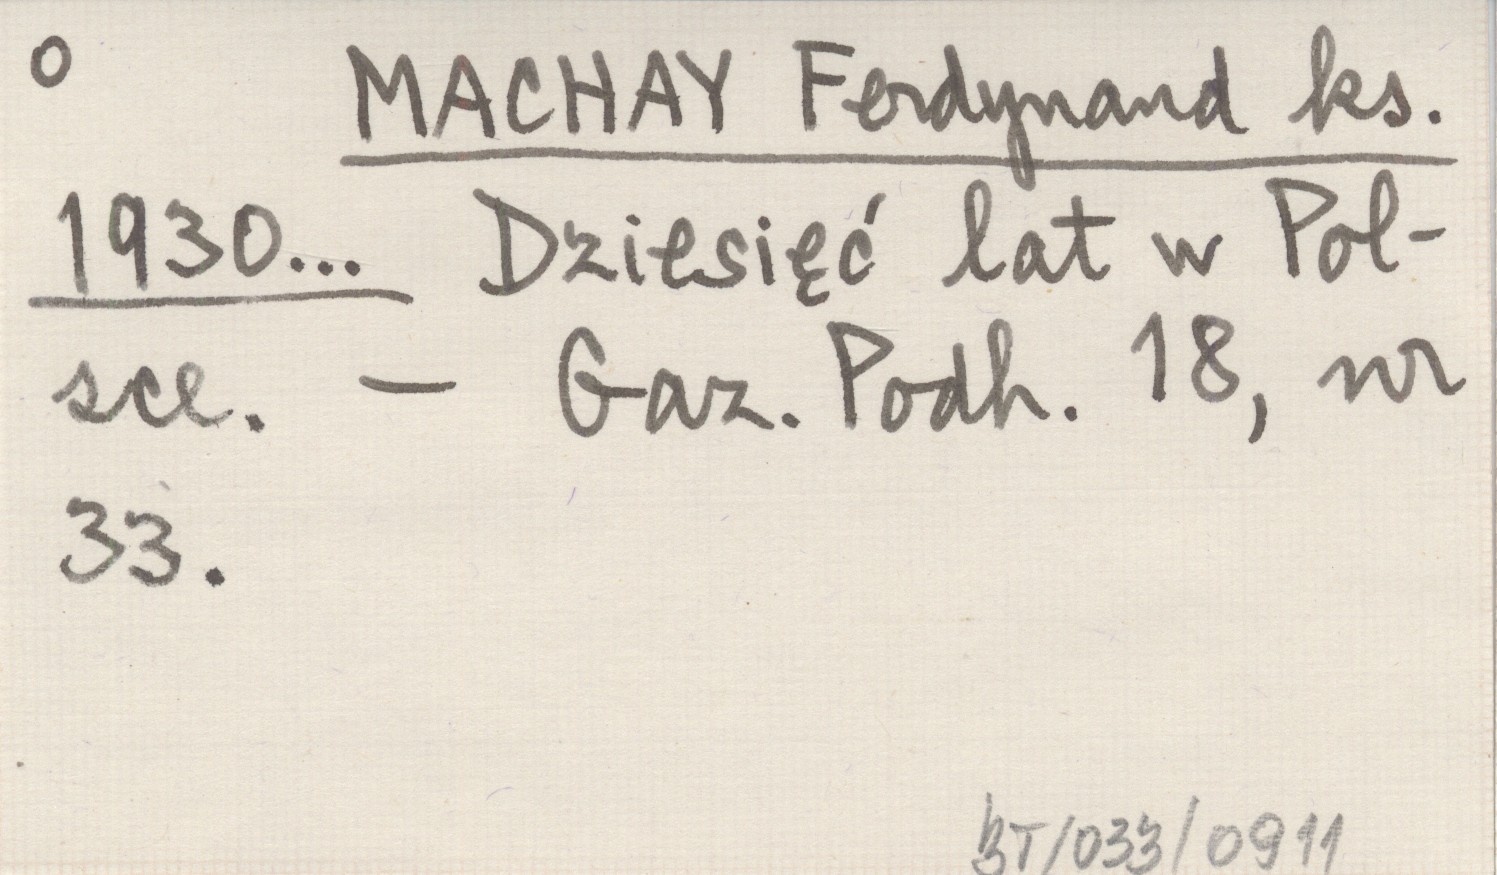 O MACHAY Ferdynand ks.
1930... Dziesięć lat w Pol-
sce. — Gaz. Podh. 18, nr
33.
BT/033/0911